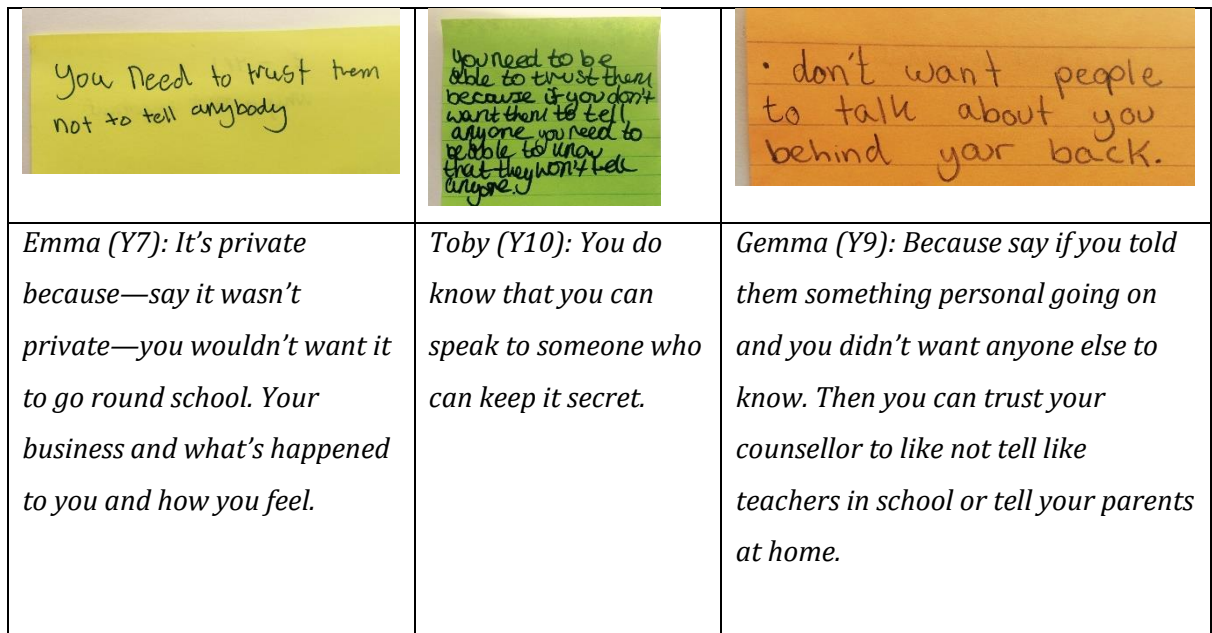 you need to trust them
not to tell anybody
you need to be
able to trust them
because if you don't
want them to tell
anyone you need to
be able to know
that they won't tell
anyone.
· don't want people
to talk about you
behind your back.
Emma (Y7): It's private
because—say it wasn't
private—you wouldn't want it
to go round school. Your
business and what's happened
to you and how you feel.
Toby (Y10): You do
know that you can
speak to someone who
can keep it secret.
Gemma (Y9): Because say if you told
them something personal going on
and you didn't want anyone else to
know. Then you can trust your
counsellor to like not tell like
teachers in school or tell your parents
at home.